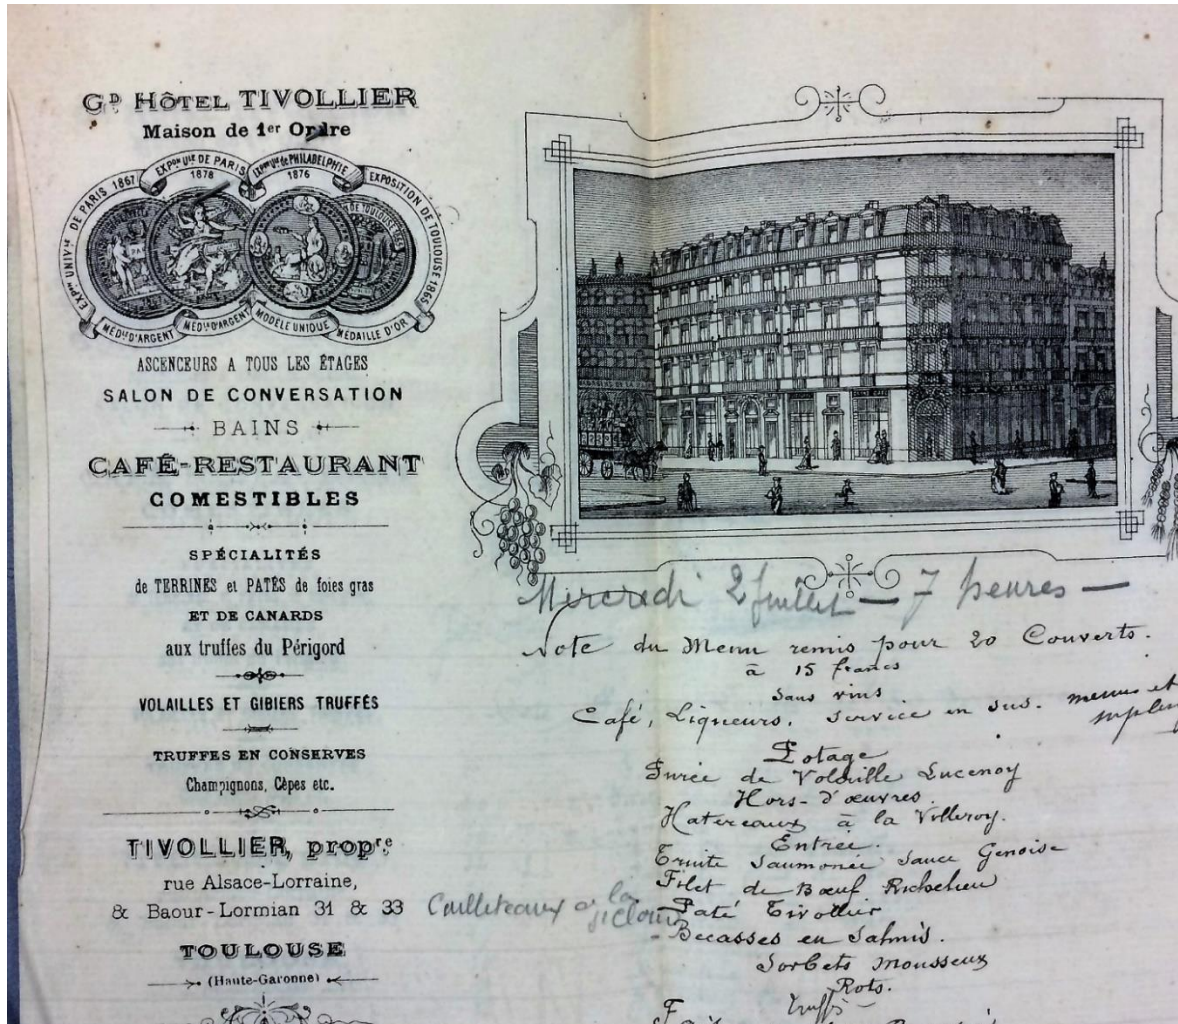 GD HÔTEL TIVOLLIER
Maison de 1er Ordre
EXPON UNIVLE DE PARIS 1867
EXPON ULE DE PARIS
1878
EXPON ULE de PHILADELPHIE
1876
EXPOSITION DE TOULOUSE 1865
MEDLE D'ARGENT
MEDLE D'ARGENT
MODÈLE UNIQUE
MÉDAILLE D'OR
ASCENCEURS A TOUS LES ÉTAGES
SALON DE CONVERSATION
BAINS
CAFÉ-RESTAURANT
COMESTIBLES
SPÉCIALITÉS
de TERRINES et PATÉS de foies gras
ET DE CANARDS
aux truffes du Périgord
VOLAILLES ET GIBIERS TRUFFÉS
TRUFFES EN CONSERVES
Champignons, Cèpes etc.
TIVOLLIER, propre
rue Alsace-Lorraine,
& Baour-Lormian 31 & 33
TOULOUSE
(Haute-Garonne)
Mercredi 2 Juillet — 7 heures —
Note du Menu remis pour 20 Couverts.
à 15 francs
sans vins
Café, Liqueurs, service en sus. menus et
Potage
Purée de Volaille Lucenoy
Hors-d'œuvres.
Hatereaux à la Villeroy.
Entrée.
Truite Saumonée Sauce Genoise
Filet de Bœuf Richelieu
Cailleteaux à la
Paté Tivollier
- Becasses en Salmis.
Sorbets Mousseux
Rots.
truffé